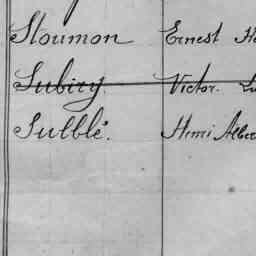 Sloumon Ernest
Subiry Victor.
Sulblé. Henri